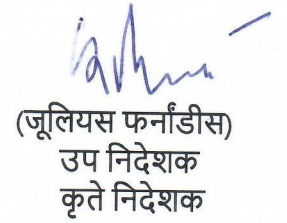 (जूलियस फर्नांडीस)
उप निदेशक
कृते निदेशक